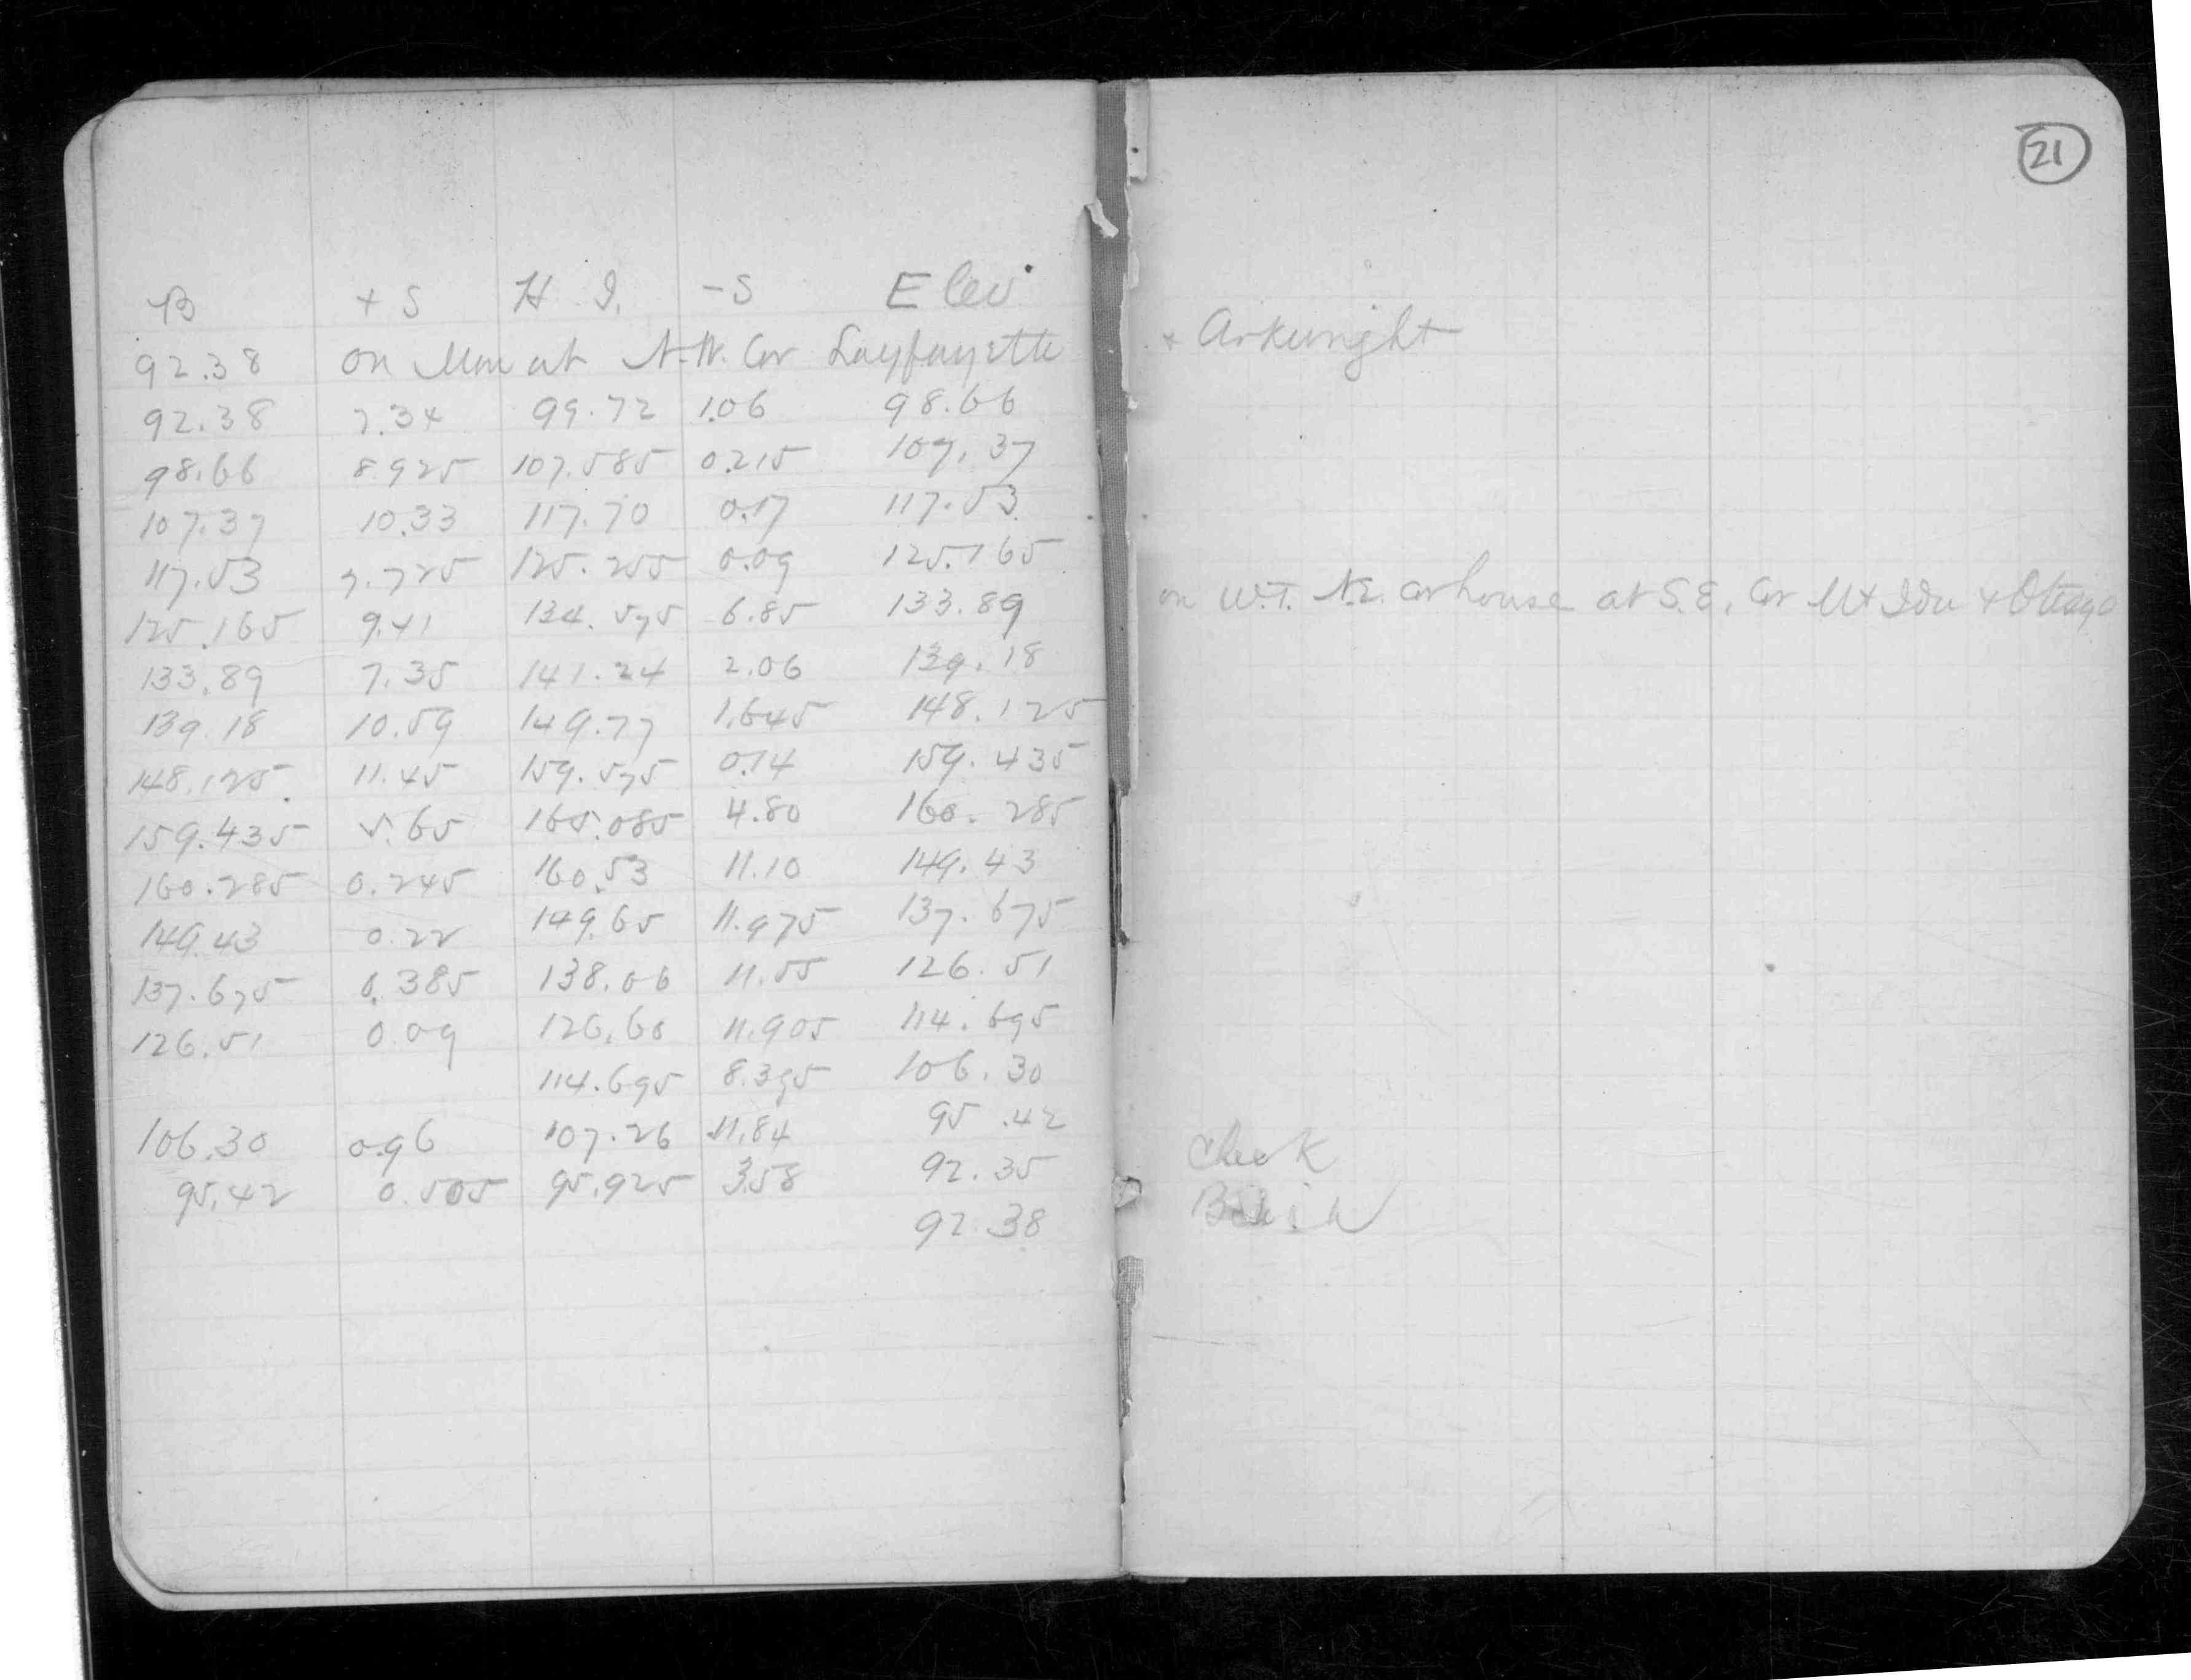 21
B + S H I. - S Elev
92.38 on Mon at N.W. Cor Layfayette + Arkwright
92.38 7.34 99.72 1.06 98.66
98.66 8.925 107.585 0.215 107.37
107.37 10.33 117.70 0.17 117.53
117.53 7.725 125.255 0.09 125.165
125.165 9.41 134.575 6.85 133.89 on W.T. N.E. cor house at S.E. Cor Mt Ida + Otsego
133.89 7.35 141.24 2.06 139.18
139.18 10.59 149.77 1.645 148.125
148.125 11.45 159.575 0.14 159.435
159.435 5.65 165.085 4.80 160.285
160.285 0.245 160.53 11.10 149.43
149.43 0.22 149.65 11.975 137.675
137.675 0.385 138.06 11.55 126.51
126.51 0.09 126.60 11.905 114.695
114.695 8.395 106.30
106.30 0.96 107.26 11.84 95.42
95.42 0.505 95.925 3.58 92.35 Check
92.38